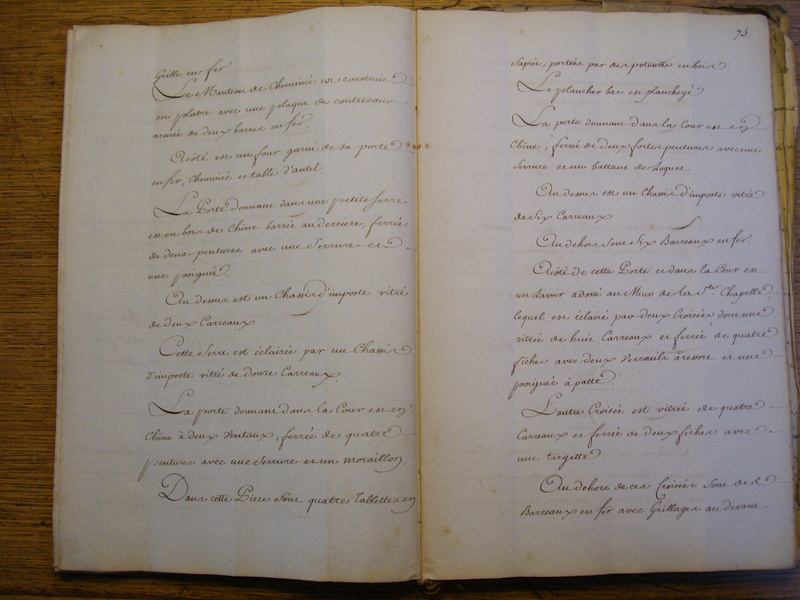 Grille en fer.
Le Manteau de Cheminée est construit
en platre avec une plaque de contrecœur
armée de deux barres en fer.
Acôté est un four garni de sa porte
en fer, Cheminée et table d'autel.
La Porte donnant dans une petite Serre
est en bois de Chêne barré au derrière, ferrée
de deux pentures avec une Serrure et
une poignée.
Au dessus est un Chassis d'imposte vitré
de deux Carreaux.
Cette Serre est éclairée par un Chassis
d'imposte vitré de douze Carreaux.
La porte donnant dans la Cour est en
Chêne à deux Ventaux, ferrée de quatre
pentures avec une Serrure et un moraillon.
Dans cette Pièce sont quatre Tablettes en
73
Sapin, portées par des potences en bois.
Le plancher bas est plancheyé
La porte donnant dans la Cour est en
Chêne, ferrée de deux fortes pentures avec une
Serrure et un battant de Loquet.
Au dessus est un Chassis d'imposte vitré
de Six Carreaux
Au dehors sont Six Barreaux en fer.
Acôté de cette Porte et dans la Cour est
un Lavoir adossé au Mur de la Ste. Chapelle,
lequel est éclairé par deux Croisées dont une
vitrée de huit Carreaux et ferrée de quatre
fiches avec deux Verrouils à ressort et une
poignée à patte.
L'autre Croisée est vitrée de quatre
Carreaux et ferrée de deux fiches avec
une targette.
Au dehors de ces Croisées sont des
Barreaux en fer avec Grillages au devant.